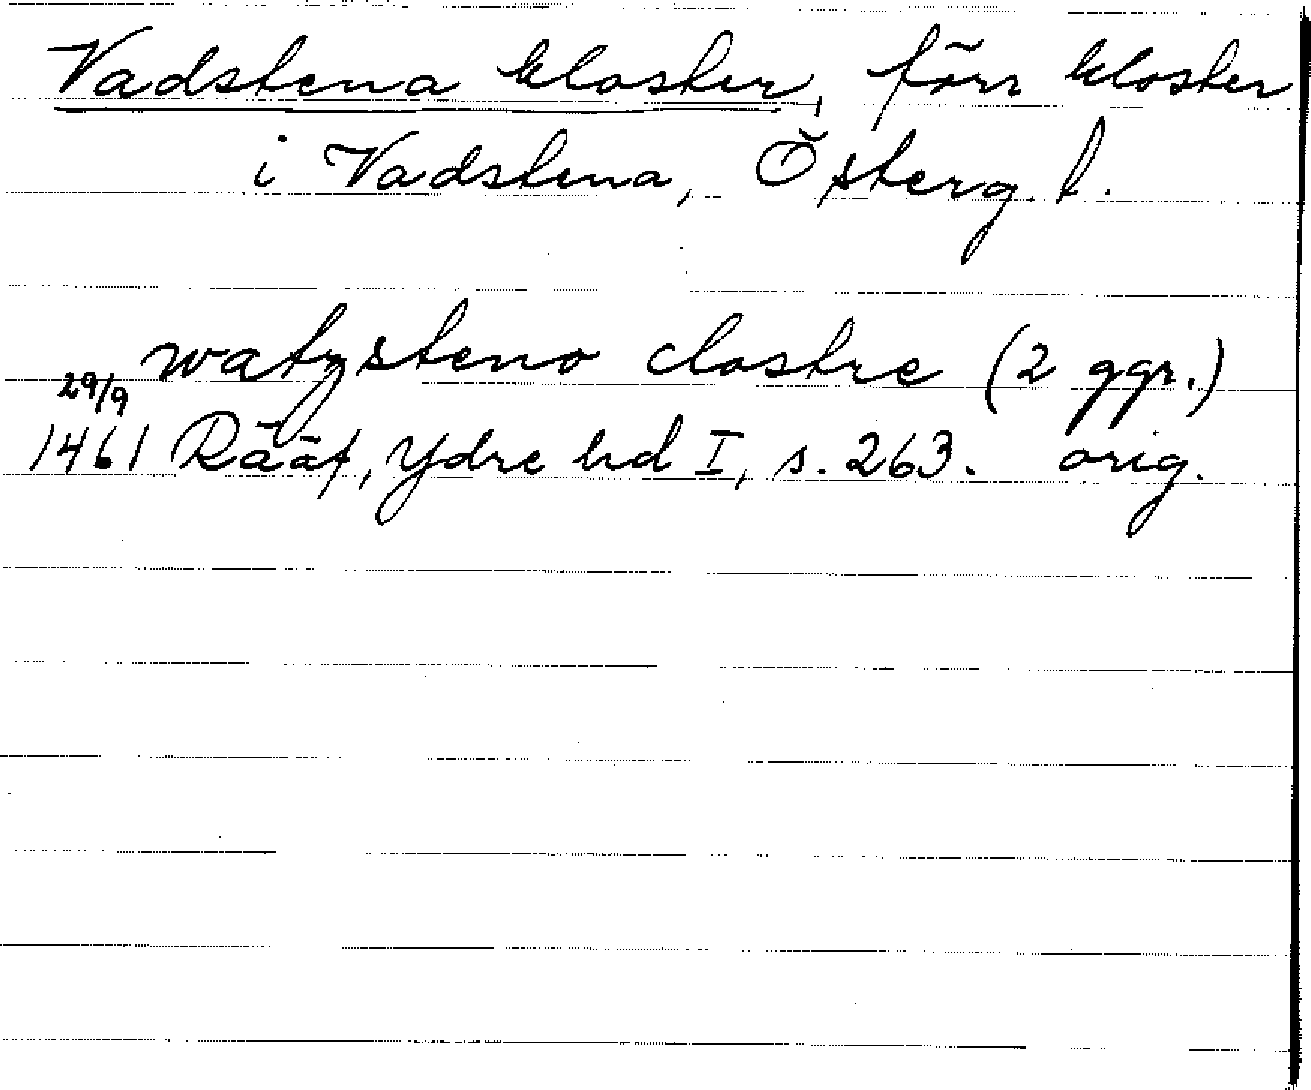 Vadstena kloster, förr kloster
i Vadstena, Österg. l.
watzsteno clostre (2 ggr.)
29/9
1461 Rääf, Ydre hd I, s. 263. orig.